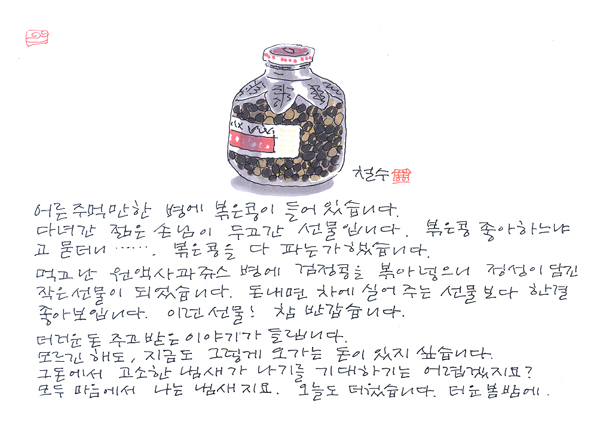 철수
어른 주먹만한 병에 볶은콩이 들어 있습니다.
다녀간 젊은 손님이 두고간 선물입니다. 볶은콩 좋아하느냐
고 묻더니 ······. 볶은콩을 다 파는가 했습니다.
먹고난 원액사과쥬스 병에 검정콩을 볶아 넣으니 정성이 담긴
작은 선물이 되었습니다. 돈내면 차에 실어 주는 선물보다 한결
좋아보입니다. 이런 선물! 참 반갑습니다.
더러운 돈 주고 받은 이야기가 들립니다.
모르긴 해도, 지금도 그렇게 오가는 돈이 있지 싶습니다.
그돈에서 고소한 냄새가 나기를 기대하기는 어렵겠지요?
모두 마음에서 나는 냄새지요. 오늘도 더웠습니다. 더운 봄밤에.